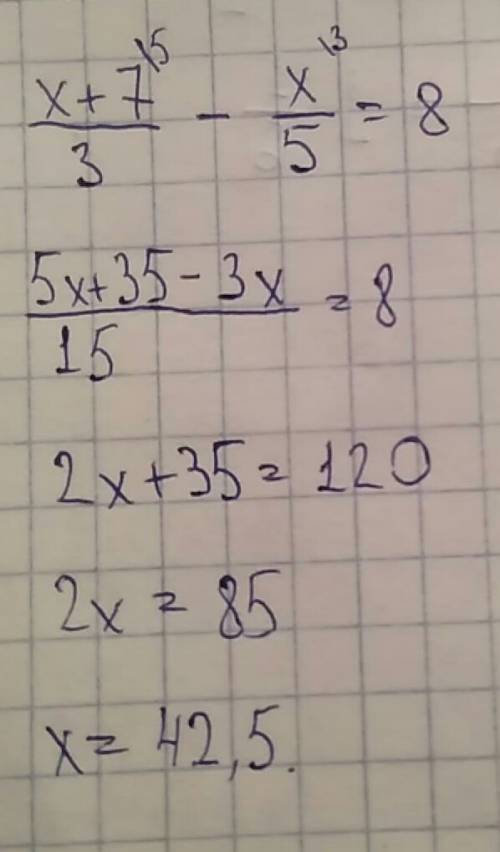 (x + 7)/3 \5 - x/5 \3 = 8
(5x + 35 - 3x)/15 = 8
2x + 35 = 120
2x = 85
x = 42,5.